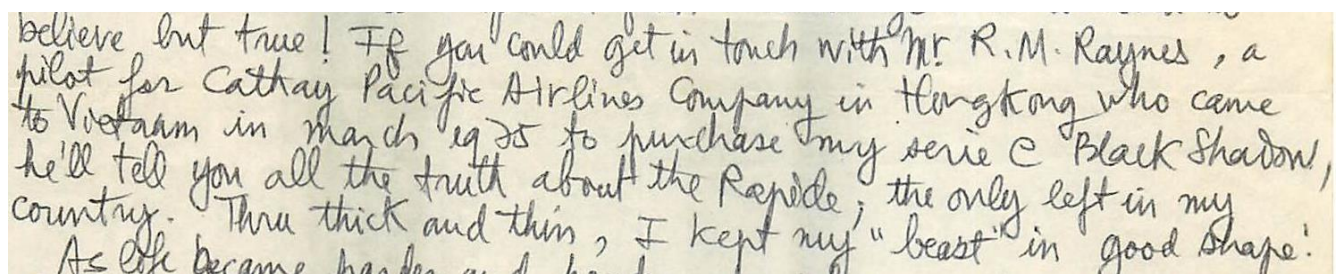 believe but true! If you could get in touch with Mr. R.M. Raynes, a
pilot for Cathay Pacific Airlines Company in Hongkong who came
to Vietnam in march 1975 to purchase my serie C Black Shadow,
he'll tell you all the truth about the Rapide; the only left in my
country. Thru thick and thin, I kept my "beast" in good shape!
As life became harder and